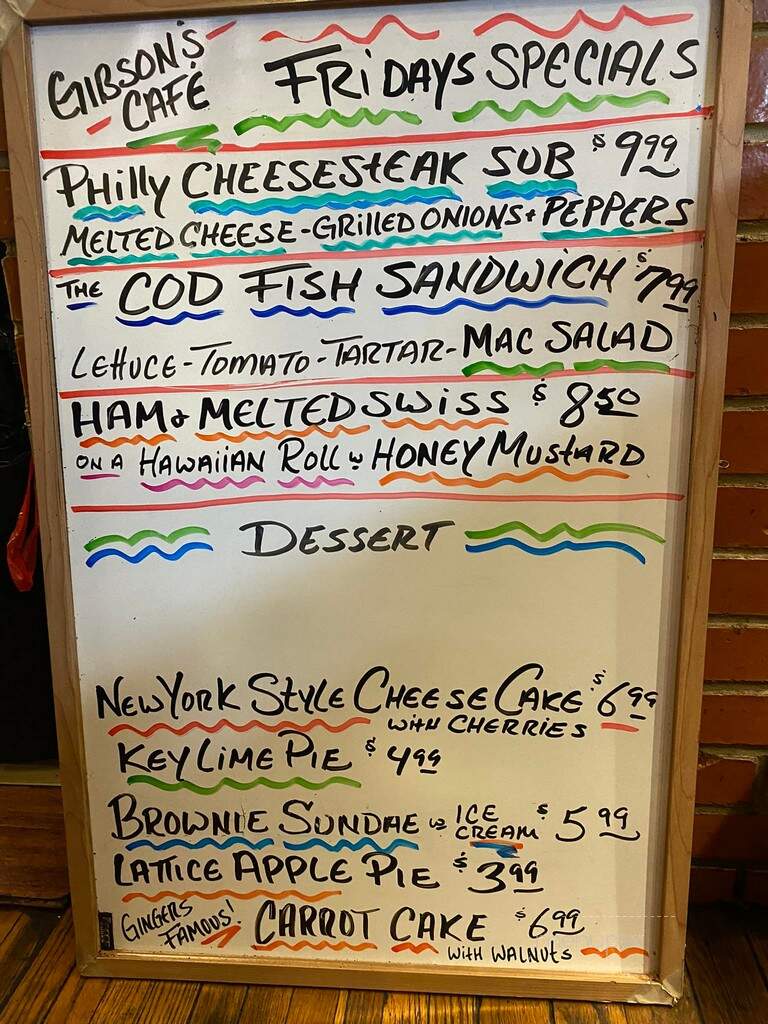 GIBSON'S CAFÉ
FRiDAYS SPECIALS
PHilly CHEESEStEAK SUB $9.99
MELTED CHEESE - GRillED ONIONS + PEPPERS
THE COD FISH SANDWiCH $7.99
LEttUCE - TOMATO - TARTAR - MAC SALAD
HAM & MELTED SWiSS $8.50
ON A HAWAiiAN ROLL w HONEY MUStARD
DESSERT
NEW YORK StYLE CHEESE CAKE $6.99
WitH CHERRiES
KEY LiME PiE $4.99
BROWNiE SUNDAE w ICE CREAM $5.99
LATTiCE APPLE PiE $3.99
GINGERS FAMOUS! CARROT CAKE $6.99
WitH WALNUtS